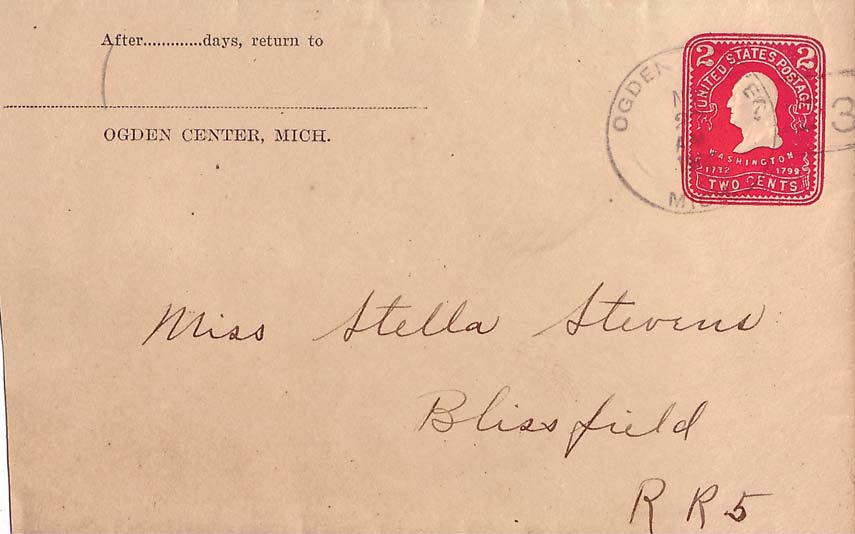 After.............days, return to
OGDEN CENTER, MICH.
2 2
UNITED STATES POSTAGE
WASHINGTON
1732 1799
TWO CENTS
OGDEN
3
Miss Stella Stevens
Blissfield
R R 5